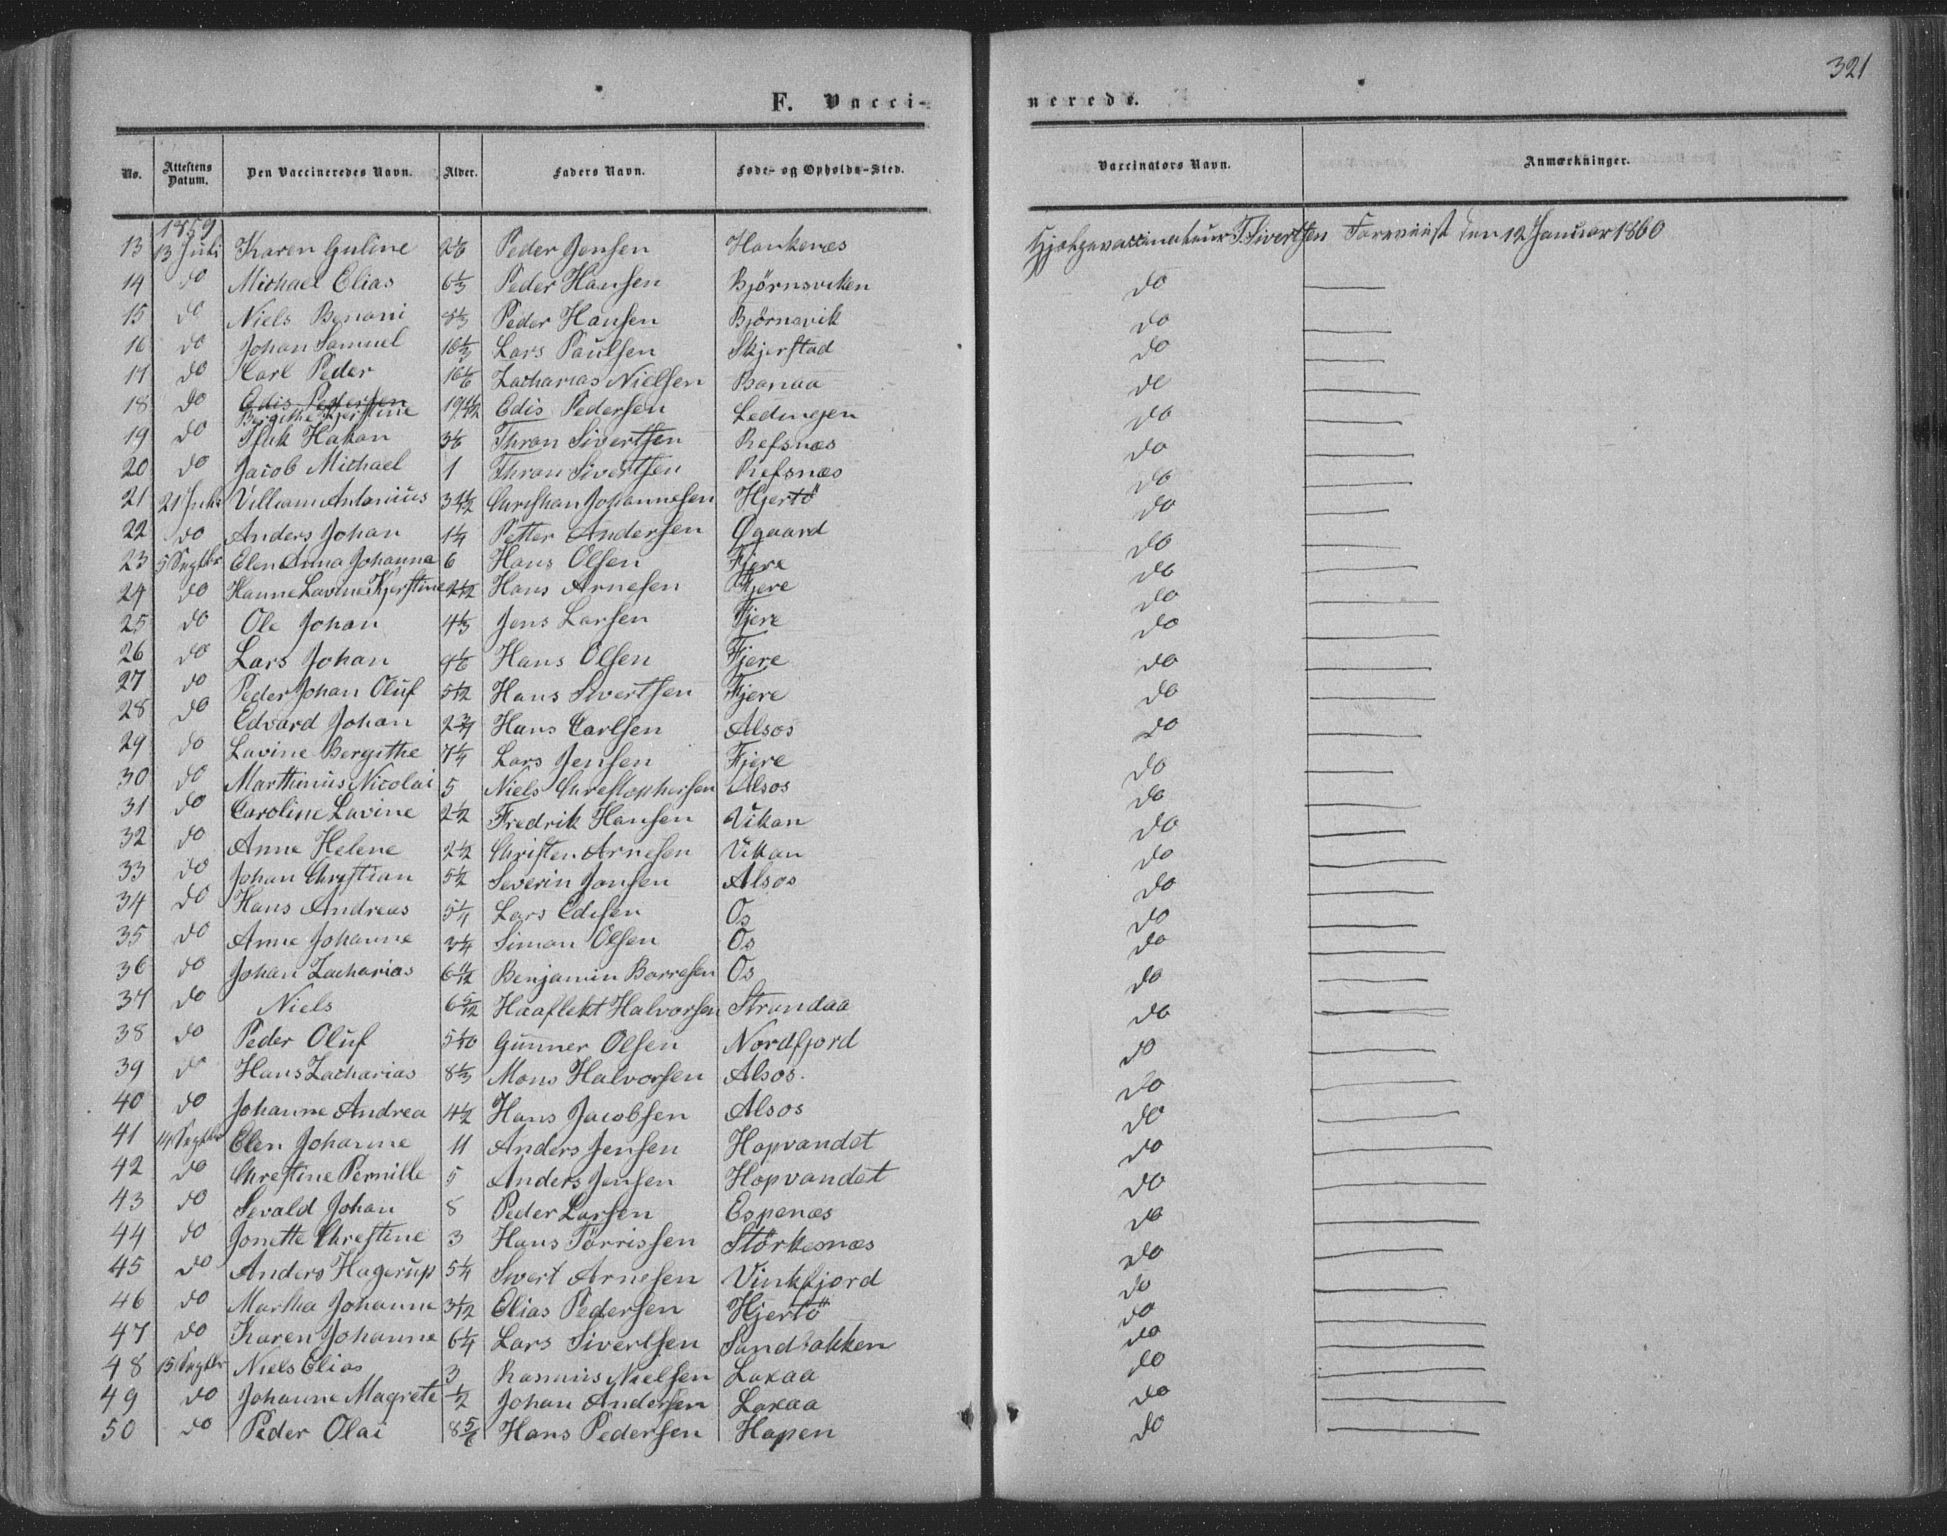 321
F. Vacci-nerede.
No. Attestens Datum. Den Vaccineredes Navn. Alder. Faders Navn. Føde- og Opholds-Sted. Vaccinators Navn. Anmærkninger.
1859
13 13 Juli Karen Guline 2 1/6 Peder Jensen Hankenæs Hjælpevaccinateur T. Sivertsen Foreviist den 12 Januar 1860
14 do Michael Elias 6 1/3 Peder Hansen Bjørnsviken do
15 do Niels Benoni 8 1/3 Peder Hansen Bjørnsvik do
16 do Johan Samuel 10 1/3 Lars Paulsen Skjerstad do
17 do Karl Peder 10 1/6 Zacharias Nielsen Bonaa do
18 do Edis Pedersen Bergithe Kjerstine 19 Edis Pedersen Ledingen do
19 do Hakan 3 1/6 Thron Sivertsen Refsnæs do
20 do Jacob Michael 1 Thron Sivertsen Refsnæs do
21 21 Juli Villiam Antonius 3 1/2 Christian Johannesen Hjertö do
22 do Anders Johan 1 1/4 Petter Andersen Øgaard do
23 5 Septbr Elen Anna Johanna 6 Hans Olsen Fjere do
24 do Hanne Lavine Kjerstine 2 1/2 Hans Arnesen Fjere do
25 do Ole Johan 4 1/3 Jens Larsen Fjere do
26 do Lars Johan 9 1/6 Hans Olsen Fjere do
27 do Peder Johan Oluf 5 1/2 Hans Sivertsen Fjere do
28 do Edvard Johan 2 3/4 Hans Carlsen Alsos do
29 do Lavine Bergithe 7 1/4 Lars Jensen Fjere do
30 do Marthinus Nicolai 5 Niels Christophersen Alsos do
31 do Caroline Lavine 2 1/2 Fredrik Hansen Vikan do
32 do Anne Helene 2 1/2 Christen Arnesen Vikan do
33 do Johan Christian 5 1/2 Severin Jonsen Alsos do
34 do Hans Andreas 5 1/4 Lars Edisen Os do
35 do Anne Johanne 3 1/4 Simon Olsen Os do
36 do Johan Zacharias 6 Benjamin Borresen Os do
37 do Niels 6 5/12 Haaflekt Halvorsen Strandaa do
38 do Peder Oluf 5 1/10 Gunner Olsen Nordfjord do
39 do Hans Zacharias 8 1/3 Mons Halvorsen Alsos. do
40 do Johanne Andrea 4 1/2 Hans Jacobsen Alsos do
41 14 Septbr Elen Johanne 11 Anders Jensen Hopvandet do
42 do Chrestine Pernille 5 Anders Jensen Hopvandet do
43 do Sevald Johan 8 Peder Larsen Espenæs do
44 do Jonette Chrestine 3 Hans Tørrissen Störkesnæs do
45 do Anders Hagerup 5 1/4 Sivert Arnesen Vinkfjord do
46 do Martha Johanne 3 1/2 Elias Pedersen Hjertö do
47 do Karen Johanne 6 1/4 Lars Sivertsen Sandbakken do
48 15 Septbr Niels Elias 3 Rasmus Nielsen Laxaa do
49 do Johanne Magrete 1/2 Johan Andersen Laxaa do
50 do Peder Olai 8 5/6 Hans Pedersen Hopen do